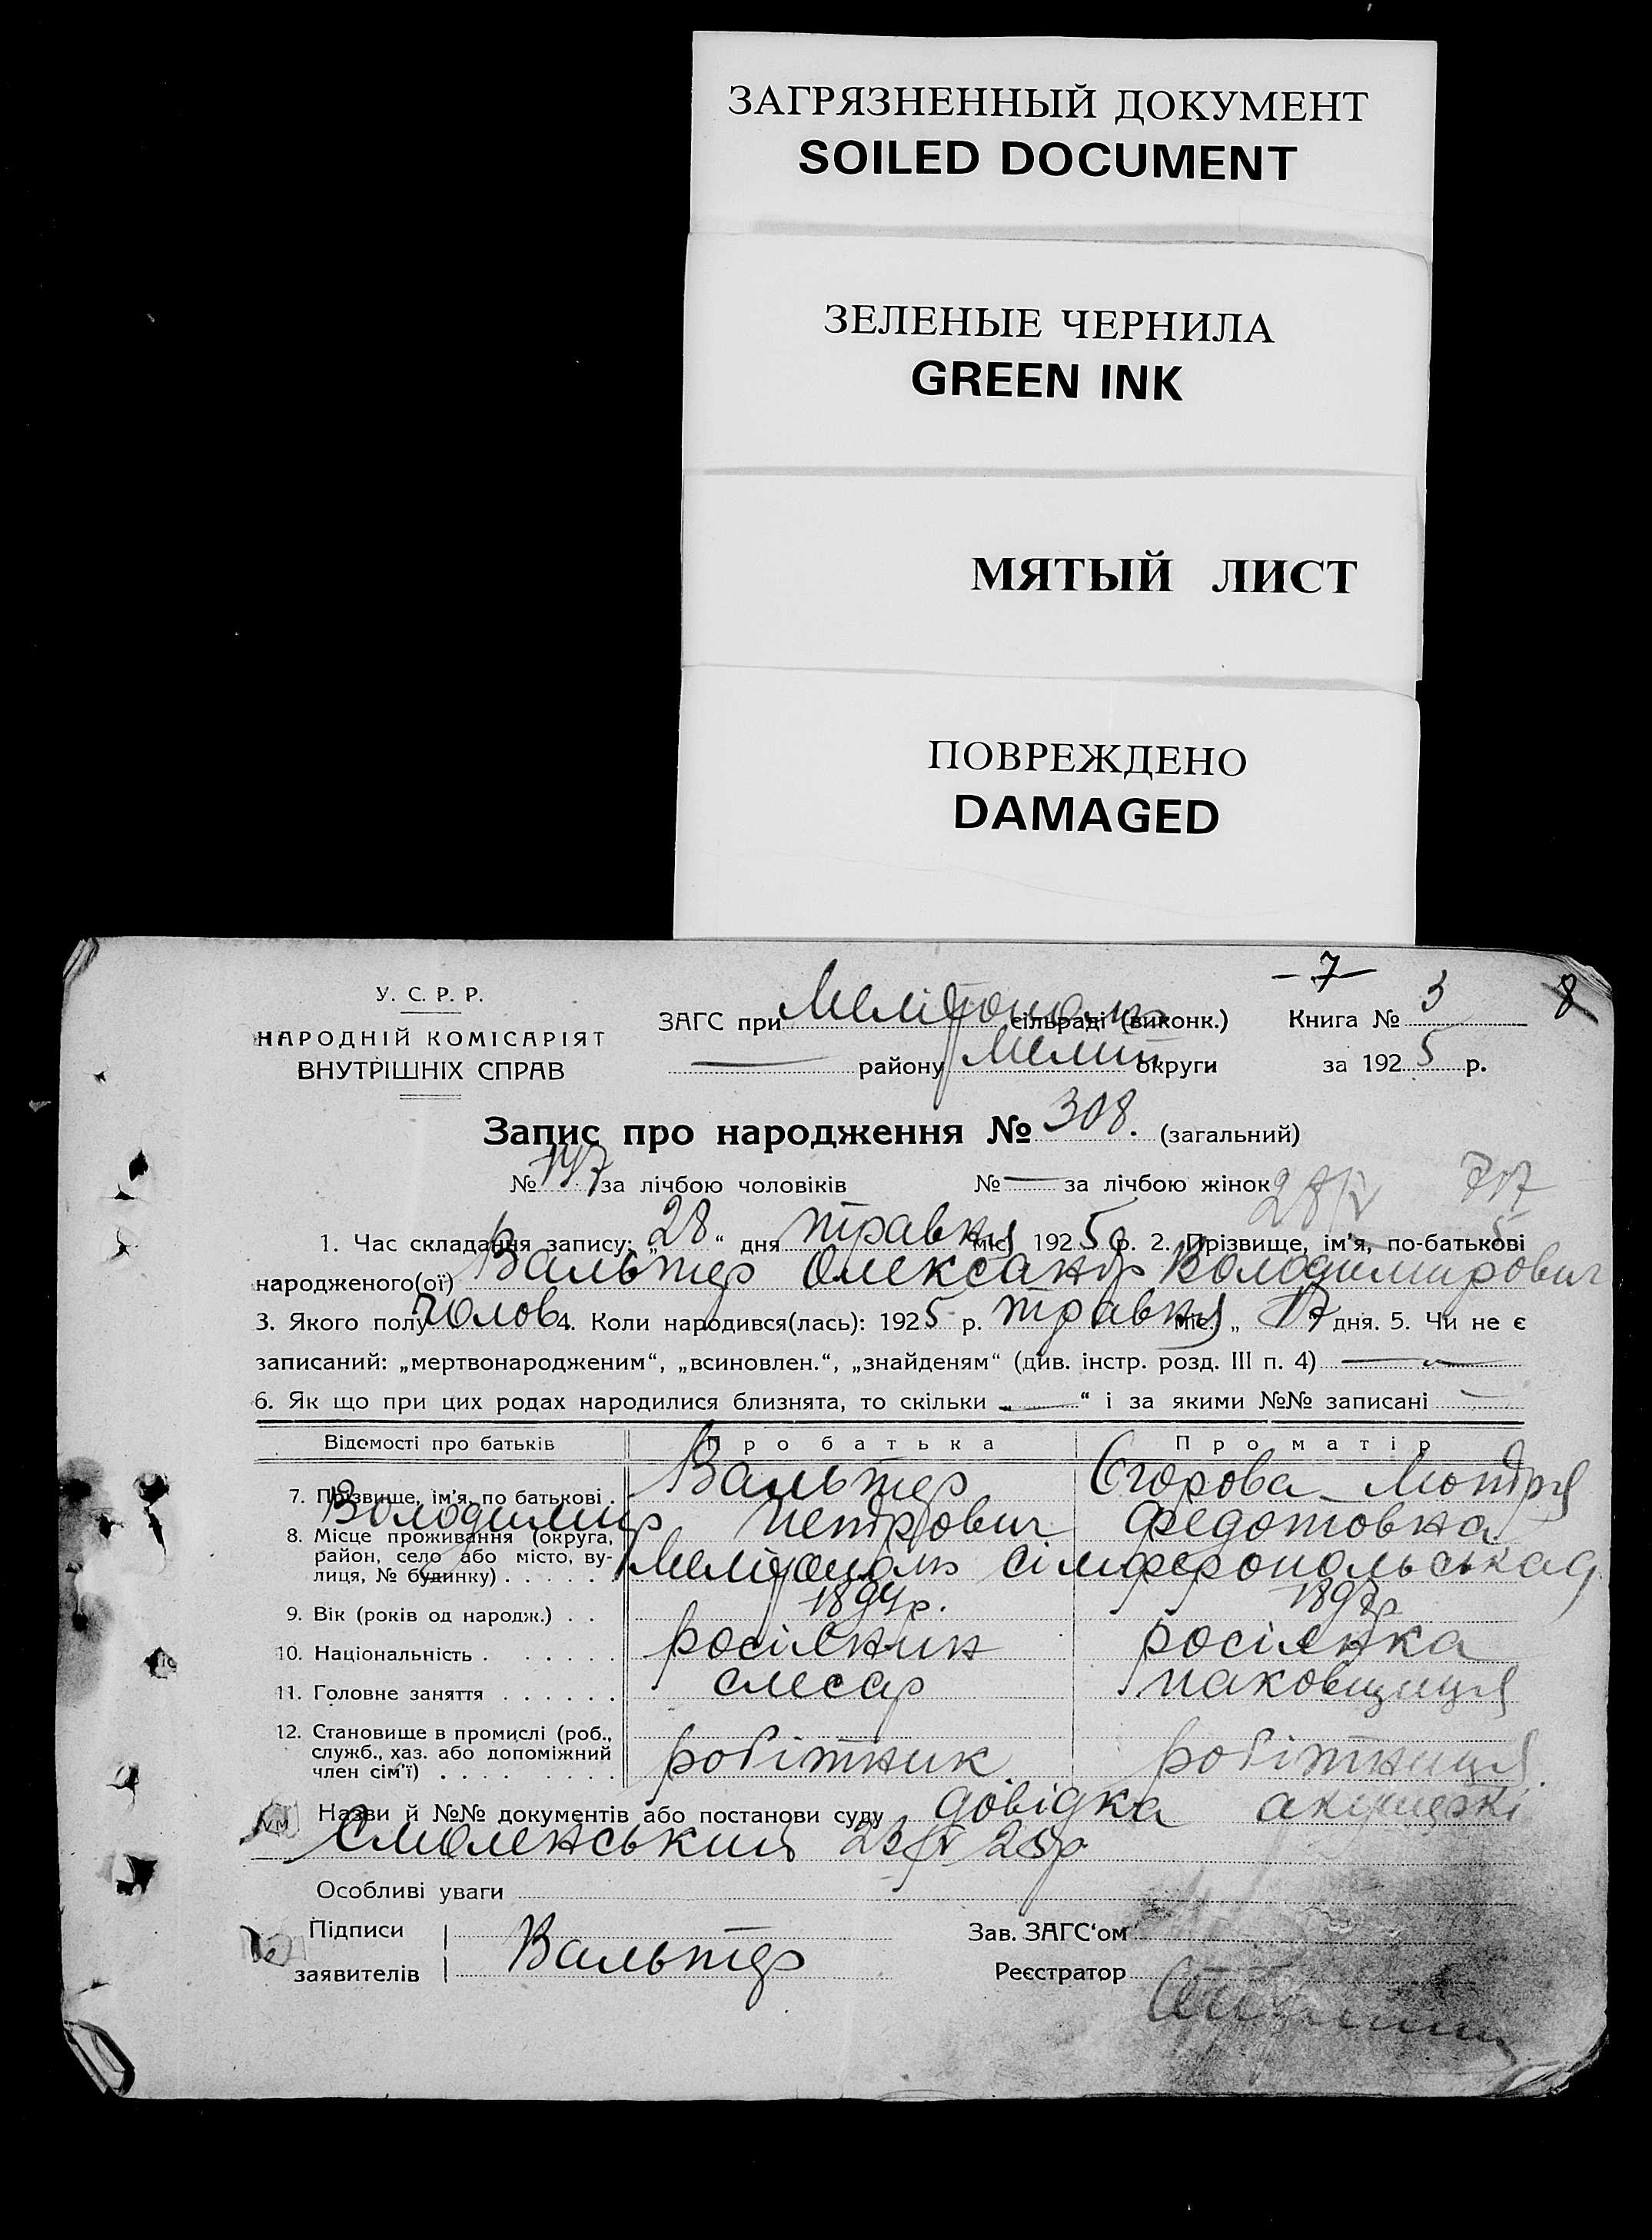 ЗАГРЯЗНЕННЫЙ ДОКУМЕНТ
SOILED DOCUMENT
ЗЕЛЕНЫЕ ЧЕРНИЛА
GREEN INK
МЯТЫЙ ЛИСТ
ПОВРЕЖДЕНО
DAMAGED
– 7 –
8
У. С. Р. Р.
НАРОДНІЙ КОМІСАРІЯТ
ВНУТРІШНІХ СПРАВ
ЗАГС при Мелітополь сільраді (виконк.) Книга № 3
— району Мелит округи за 1925 р.
Запис про народження № 308. (загальний)
№ 147 за лічбою чоловіків № — за лічбою жінок 28/V
1. Час складання запису: „28“ дня травня міс. 1925 р. 2. Прізвище, ім'я, по-батькові
народженого(ої) Вальтер Олександр Володимирович
3. Якого полу чолов 4. Коли народився(лась): 1925 р. травня міс. „17“ дня. 5. Чи не є
записаний: „мертвонародженим“, „всиновлен.“, „знайденям“ (див. інстр. розд. III п. 4) —
6. Як що при цих родах народилися близнята, то скільки „—“ і за якими №№ записані —
Відомості про батьків Про батька Про матір
7. Прізвище, ім'я, по батькові . Вальтер Єгорова Мотря
Володимир Петрович Федотовна
8. Місце проживання (округа, район, село або місто, вулиця, № будинку) . . . . . Мелітополь Сімферопольська 9
9. Вік (років од народж.) . . 1894р. 1897р
10. Національність . . . . . . росіянин росіянка
11. Головне заняття . . . . . . слесар паковщиця
12. Становище в промислі (роб.,
служб., хаз. або допоміжний
член сім'ї) . . . . . . робітник робітниця
Назви й №№ документів або постанови суду довідка акушерки
Смоленський 23/V 25р
Особливі уваги
Підписи Зав. ЗАГС'ом
заявителів Вальтер Реєстратор